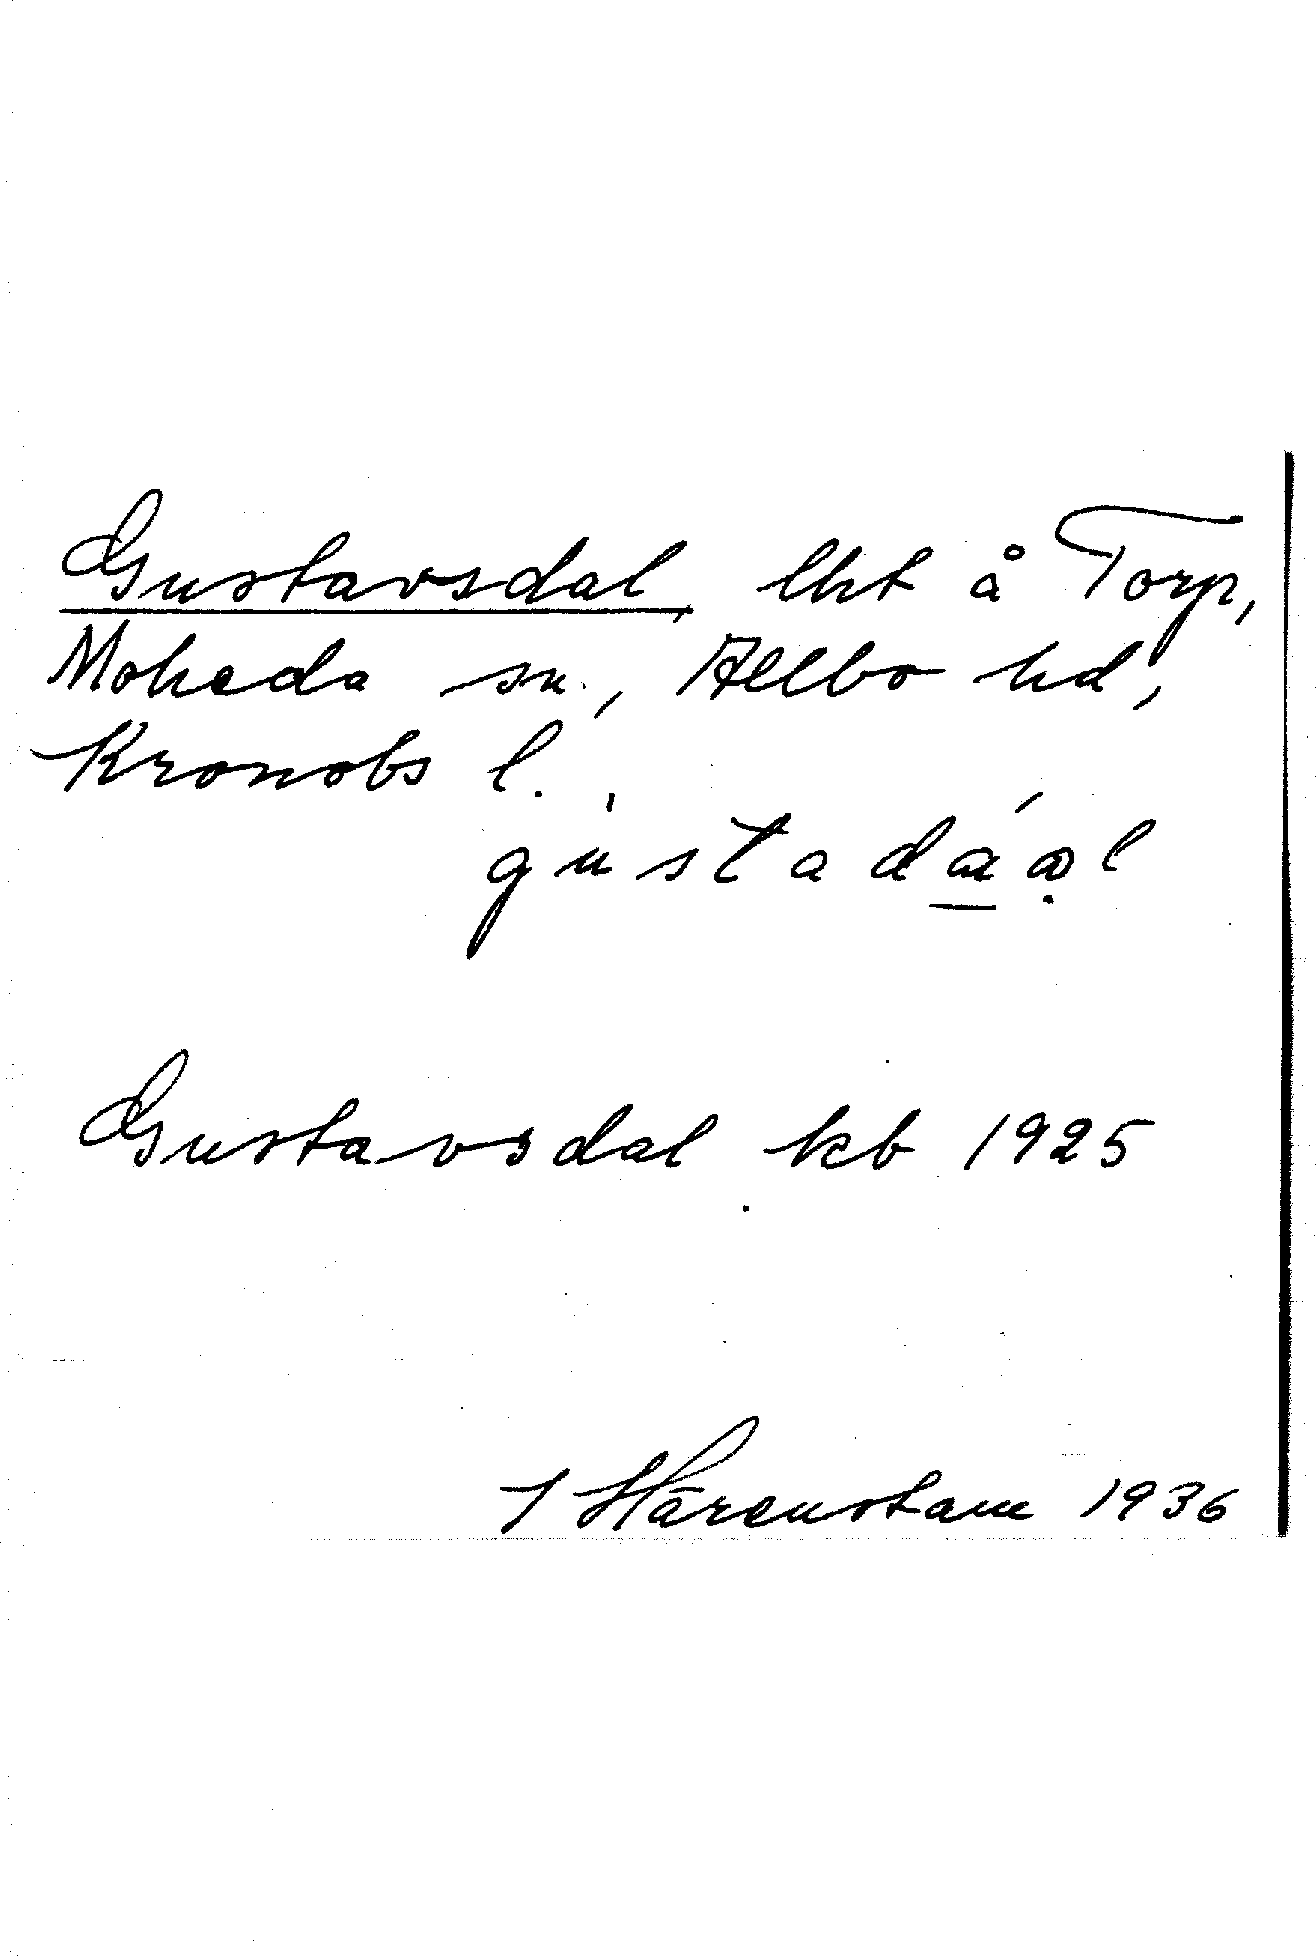 Gustavsdal lht å Torp,
Moheda sn., Allbo hd,
Kronobs l.
Gustavsdal kb 1925
I Härenstam 1936